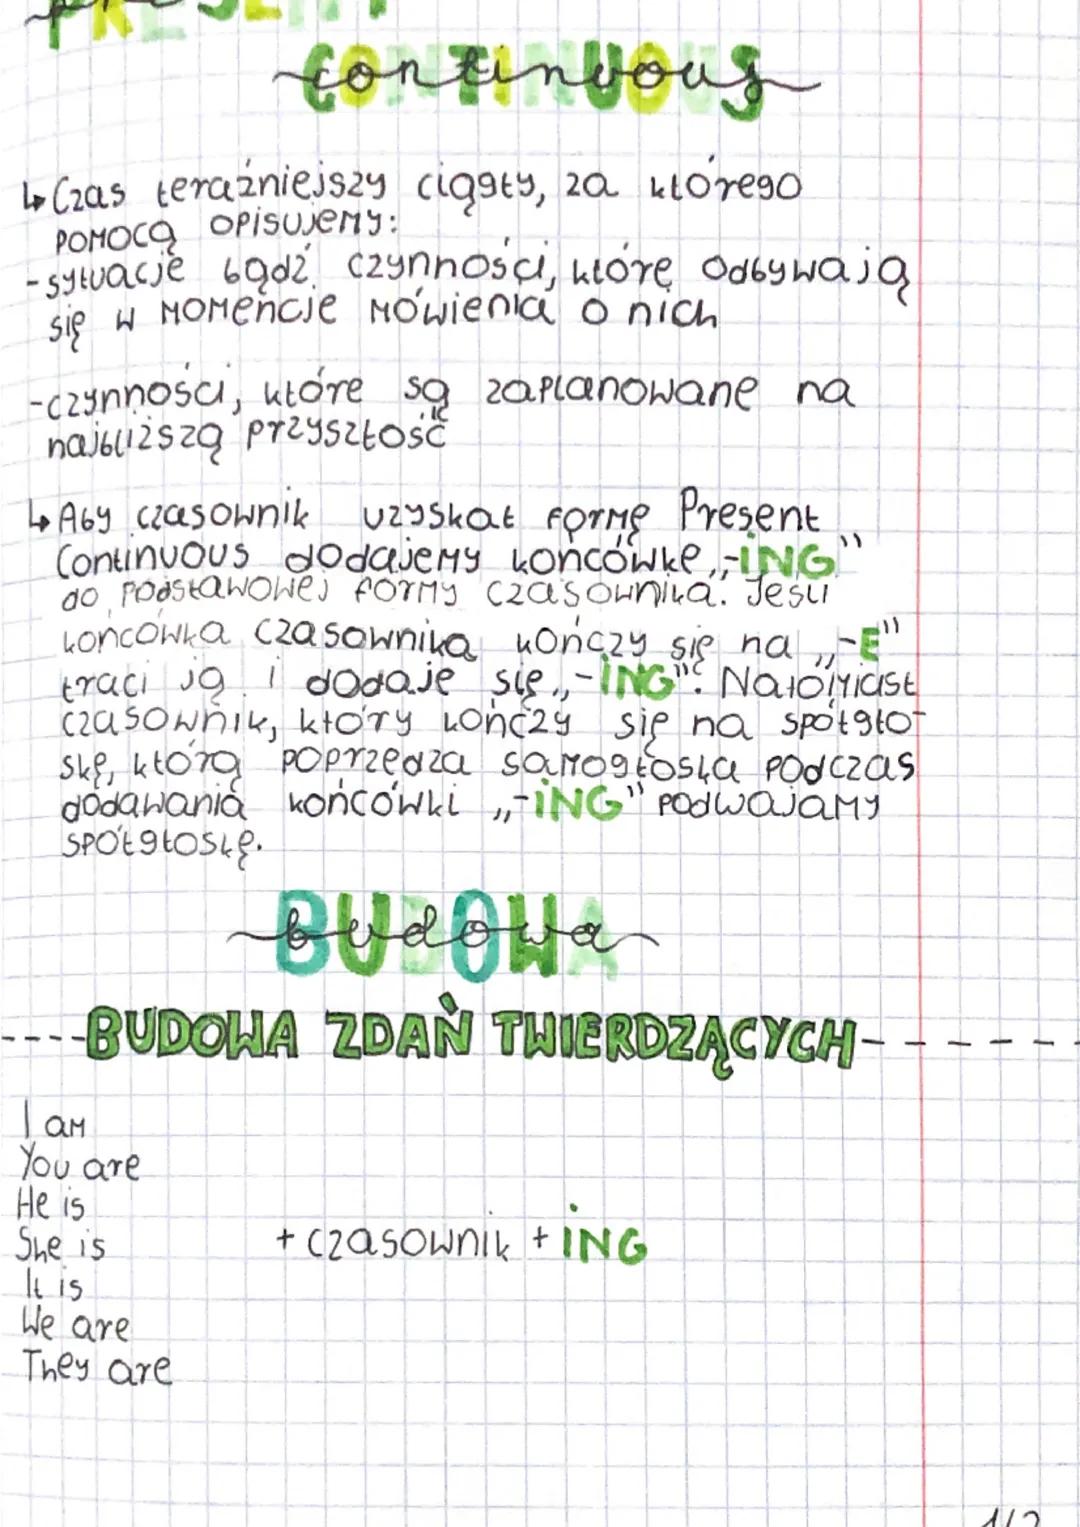 PRESENT
continuous
↳ Czas teraźniejszy ciągły, za którego
pomocą opisujemy:
- sytuacje bądź czynności, które odbywają
się w momencie mówienia o nich
- czynności, które są zaplanowane na
najbliższą przyszłość
↳ Aby czasownik uzyskał formę Present
Continuous dodajemy końcówkę „-ING"
do podstawowej formy czasownika. Jeśli
końcówka czasownika kończy się na „-E"
traci ją i dodaje się „-ING". Natomiast
czasownik, który kończy się na spółgło-
skę, którą poprzedza samogłoska podczas
dodawania końcówki „-ING" podwajamy
spółgłoskę.
budowa
----BUDOWA ZDAŃ TWIERDZĄCYCH------
I am
You are
He is
She is
+ czasownik + ING
It is
We are
They are
1/2